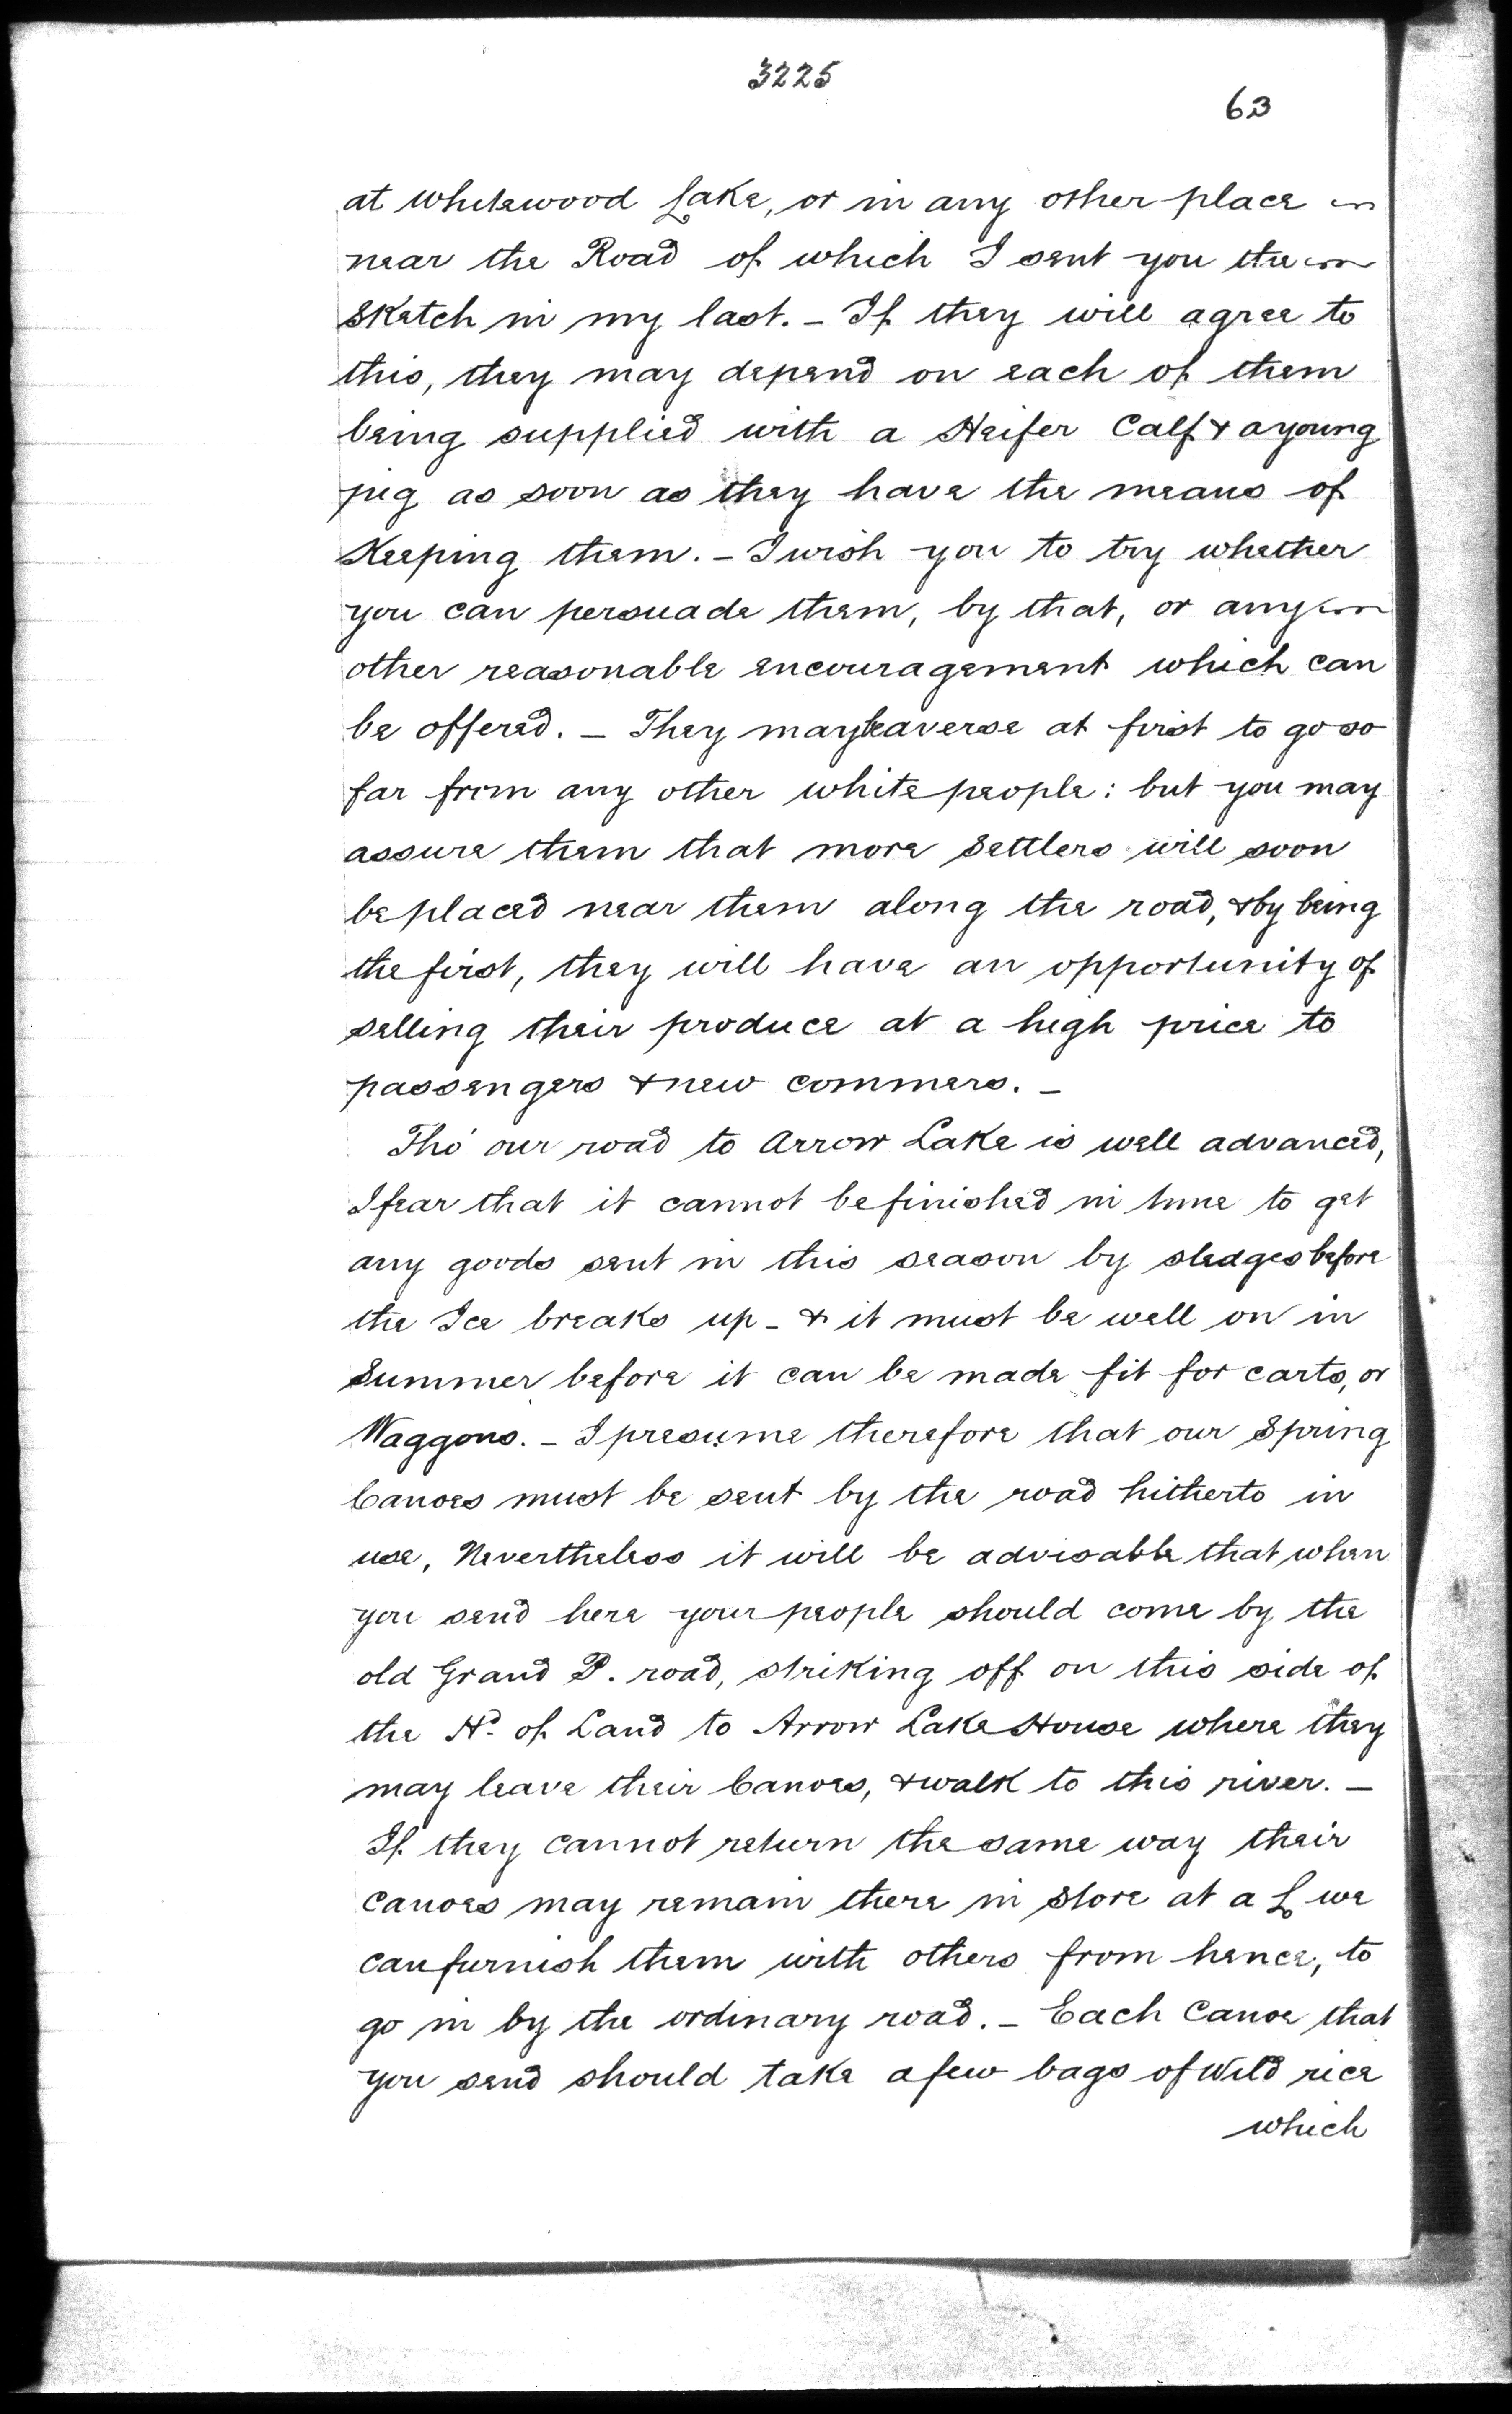 3225
63
at Whitewood Lake, or in any other place
near the Road of which I sent you the
Sketch in my last. - If they will agree to
this, they may depend on each of them
being supplied with a Heifer Calf & a young
pig as soon as they have the means of
Keeping them. - I wish you to try whether
you can persuade them, by that, or any
other reasonable encouragement which can
be offered. - They may be averse at first to go so
far from any other white people: but you may
assure them that more Settlers will soon
be placed near them along the road, & by being
the first, they will have an opportunity of
selling their produce at a high price to
passengers & new commers. -
Tho' our road to Arrow Lake is well advanced,
I fear that it cannot be finished in time to get
any goods sent in this season by sledges before
the Ice breaks up - & it must be well on in
Summer before it can be made fit for carts, or
Waggons. - I presume therefore that our Spring
Canoes must be sent by the road hitherto in
use, Nevertheless it will be advisable that when
you send here your people should come by the
old Grand P. road, striking off on this side of
the Hd. of Land to Arrow Lake House where they
may leave their Canoes, & walk to this river. -
If they cannot return the same way their
canoes may remain there in store at a L we
can furnish them with others from hence, to
go in by the ordinary road. - Each Canoe that
you send should take a few bags of Wild rice
which